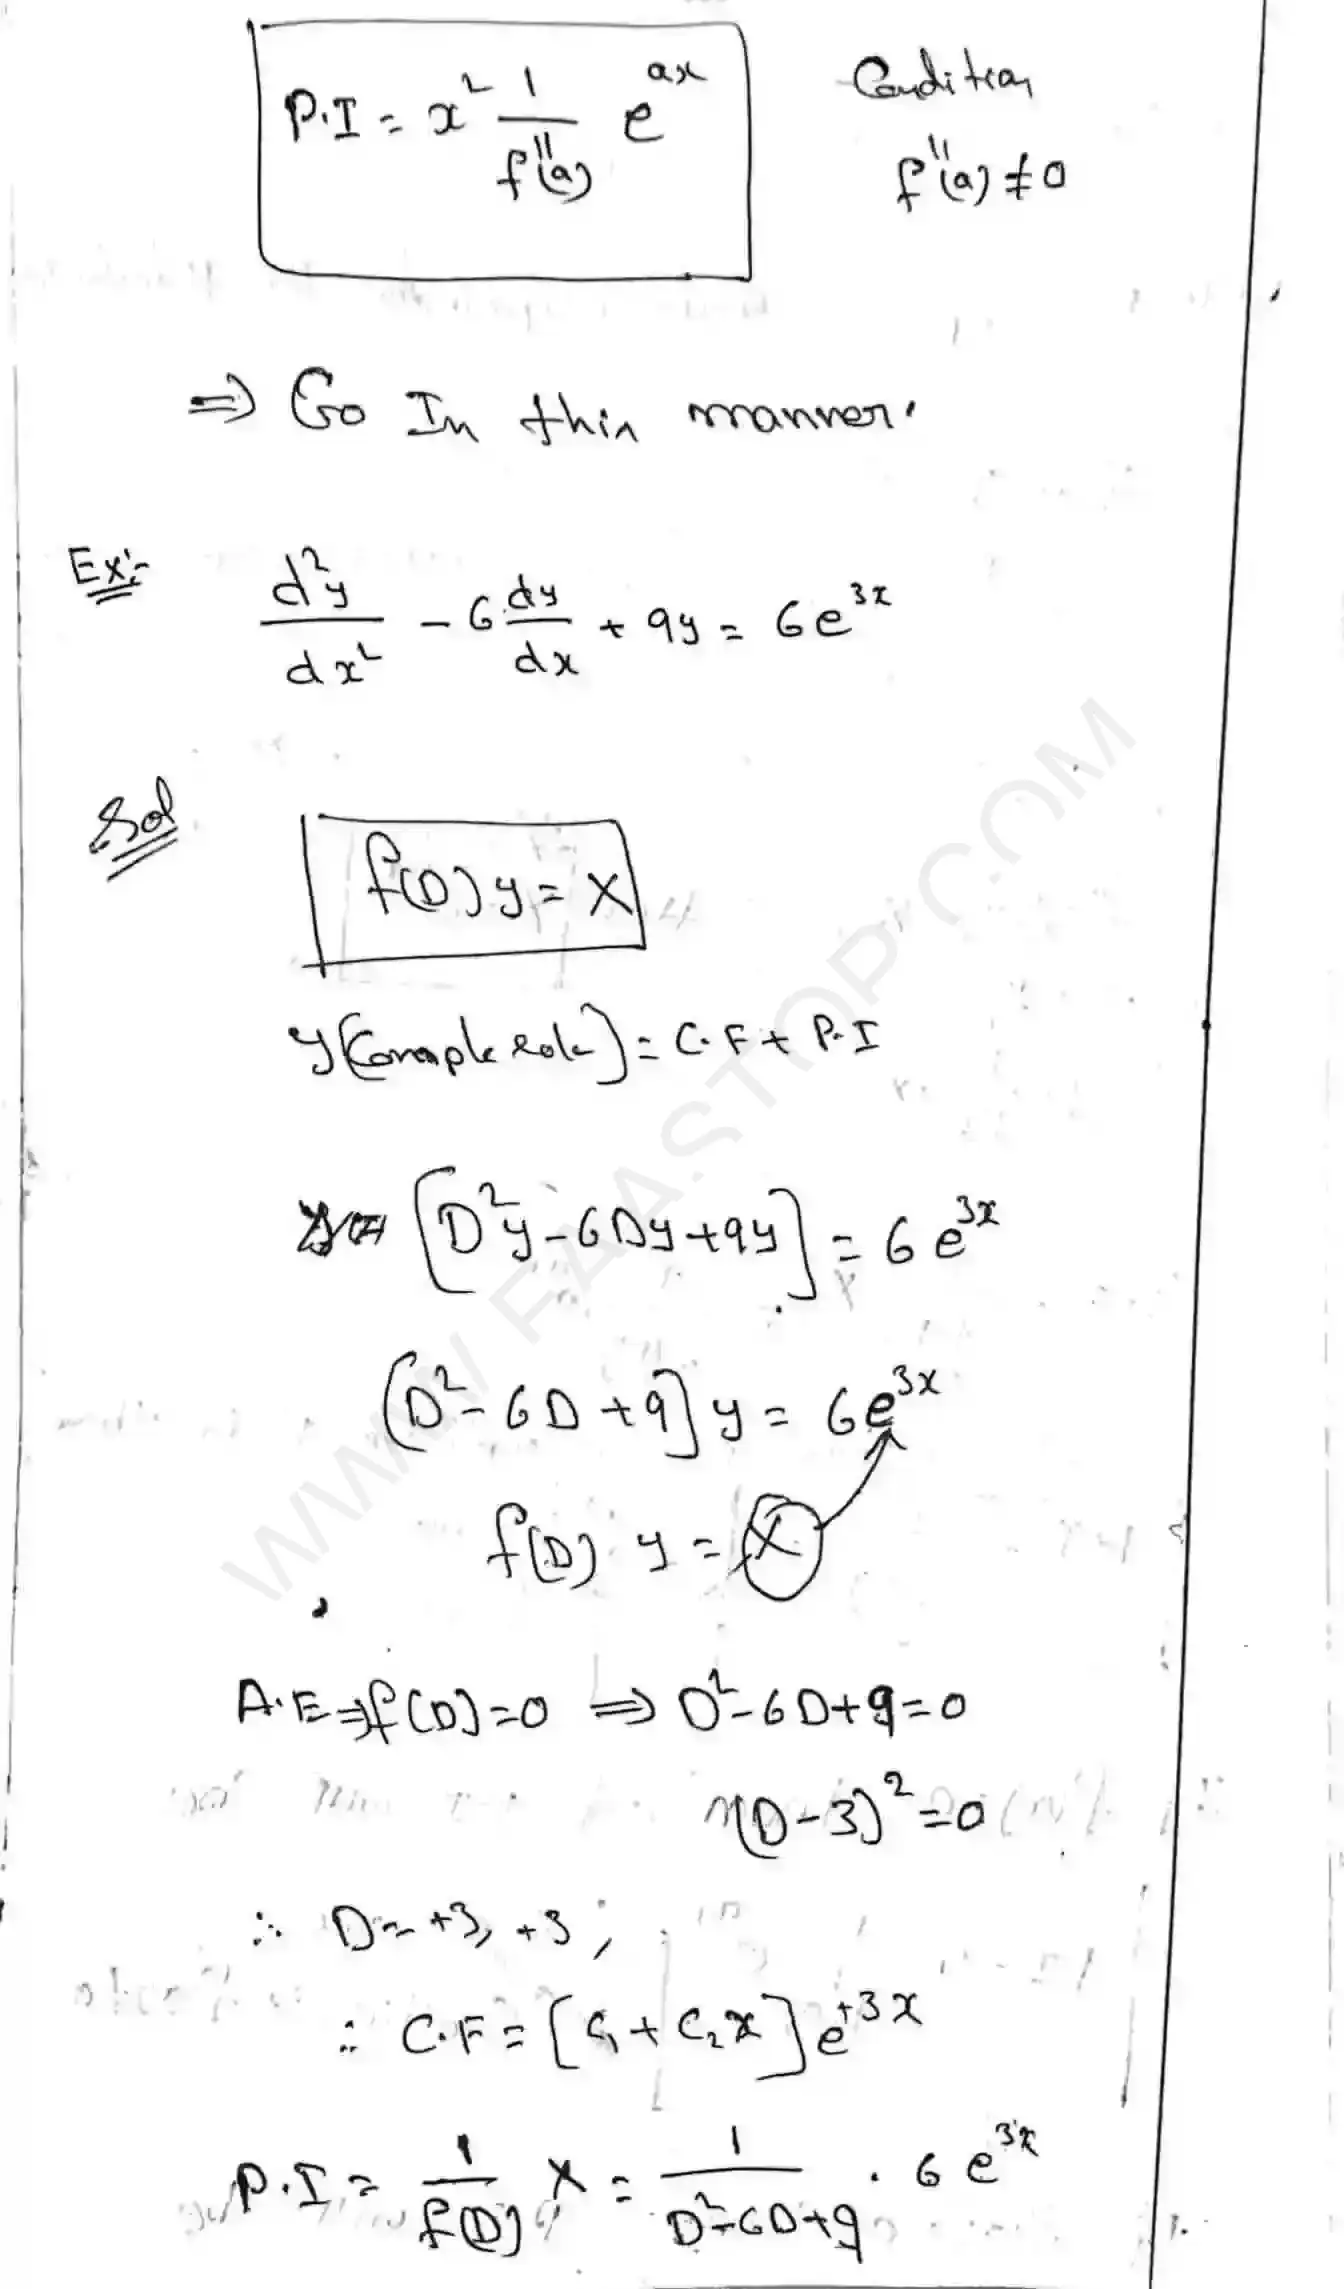 P.I = x² 1/f''(a) e^{ax}
Condition
f''(a) ≠ 0
⇒ Go In this manner.
Ex:- d²y/dx² - 6 dy/dx + 9y = 6e^{3x}
Sol
f(D) y = X
y = C.F + P.I
[D²y - 6Dy + 9y] = 6e^{3x}
[D² - 6D + 9] y = 6e^{3x}
f(D) y = X
A.E ⇒ f(D) = 0 ⇒ D² - 6D + 9 = 0
(D - 3)² = 0
∴ D = +3, +3;
∴ C.F = [C₁ + C₂x] e^{+3x}
P.I = 1/f(D) X = 1/(D² - 6D + 9) . 6e^{3x}
WWW.FAASTOP.COM